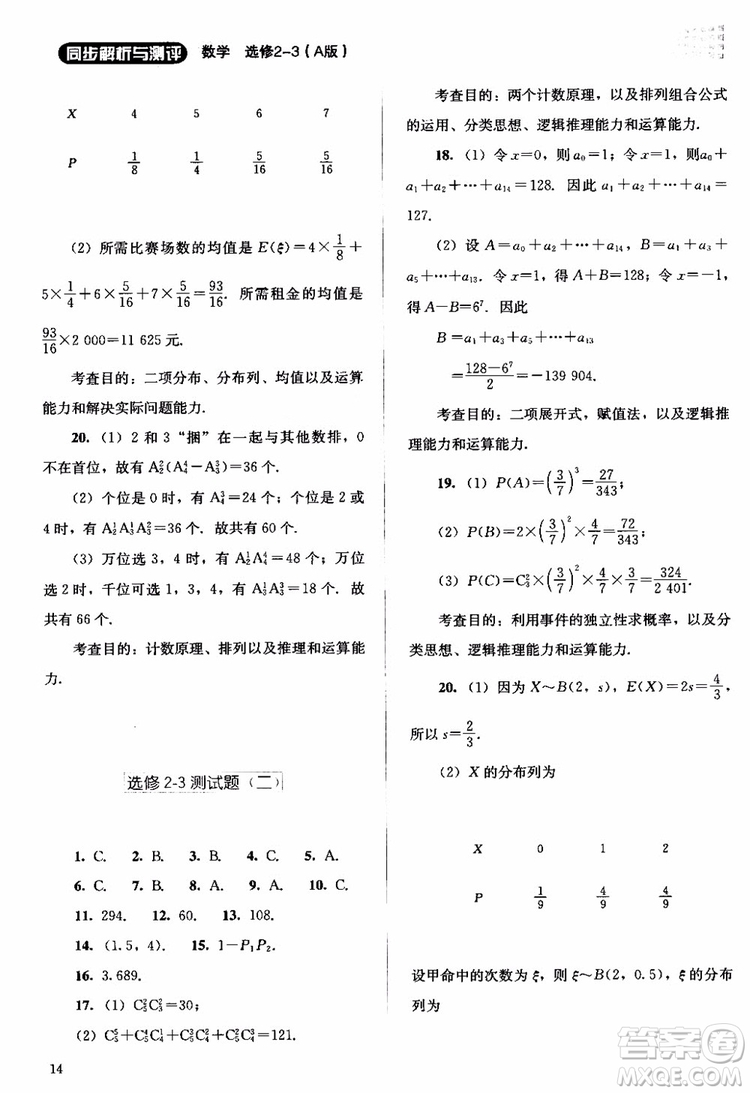 同步解析与测评 数学 选修2-3(A版)
X 4 5 6 7
P 1/8 1/4 5/16 5/16
(2) 所需比赛场数的均值是 E(ξ)=4×1/8+
5×1/4+6×5/16+7×5/16=93/16. 所需租金的均值是
93/16×2 000=11 625 元.
考查目的:二项分布、分布列、均值以及运算
能力和解决实际问题能力.
20. (1) 2 和 3“捆”在一起与其他数排,0
不在首位,故有 A₂²(A₄⁴-A₃³)=36 个.
(2) 个位是 0 时,有 A₄⁴=24 个;个位是 2 或
4 时,有 A₂¹A₃¹A₃³=36 个. 故共有 60 个.
(3) 万位选 3,4 时,有 A₂¹A₄⁴=48 个;万位
选 2 时,千位可选 3,4,1,有 A₃¹A₃³=18 个. 故
共有 66 个.
考查目的:计数原理、排列以及推理和运算能
力.
选修 2-3 测试题(二)
1. C. 2. B. 3. C. 4. A. 5. A.
6. C. 7. B. 8. A. 9. A. 10. C.
11. 294. 12. 60. 13. 108.
14. (1.5, 4). 15. 1-P₁P₂.
16. 3.689.
17. (1) C₅²C₃²=30;
14
考查目的:两个计数原理,以及排列组合公式
的运用、分类思想、逻辑推理能力和运算能力.
18. (1) 令 x=0,则 a₀=1;令 x=1,则 a₀+
a₁+a₂+…+a₁₄=128. 因此 a₁+a₂+…+a₁₄=
127.
(2) 设 A=a₀+a₂+…+a₁₄,B=a₁+a₃+
a₅+…+a₁₃. 令 x=1,得 A+B=128;令 x=-1,
得 A-B=6⁷. 因此
B=a₁+a₃+a₅+…+a₁₃
=(128-6⁷)/2=-139 904.
考查目的:二项展开式,赋值法,以及逻辑推
理能力和运算能力.
19. (1) P(A)=(3/7)³=27/343;
(2) P(B)=2×(3/7)²×4/7=72/343;
(3) P(C)=C₃²×(3/7)³×4/7=324/2 401.
考查目的:利用事件的独立性求概率,以及分
类思想、逻辑推理能力和运算能力.
20. (1) 因为 X~B(2, s),E(X)=2s=4/3,
所以 s=2/3.
(2) X 的分布列为
X 0 1 2
P 1/9 4/9 4/9
设甲命中的次数为 ξ,则 ξ~B(2, 0.5),ξ 的分布
列为